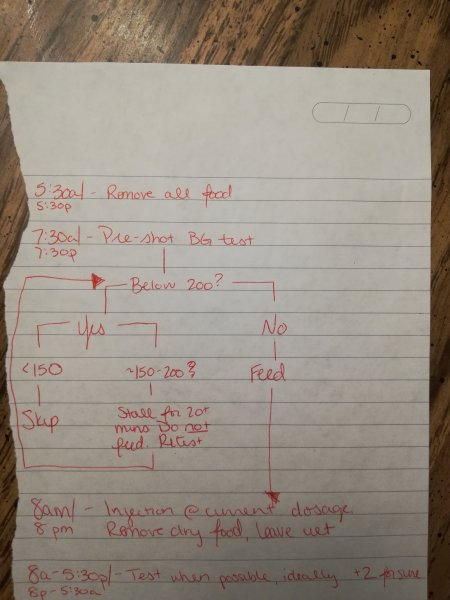 5:30a/ - Remove all food
5:30p
7:30a/ - Pre-shot BG test
7:30p
Below 200?
Yes
No
<150
~150-200?
Feed
Skip
Stall for 20+
mins. Do not
feed. Retest
8am/ - Injection @ current dosage.
8pm Remove dry food, leave wet
8a-5:30p/- Test when possible, ideally +2 for sure
8p-5:30a